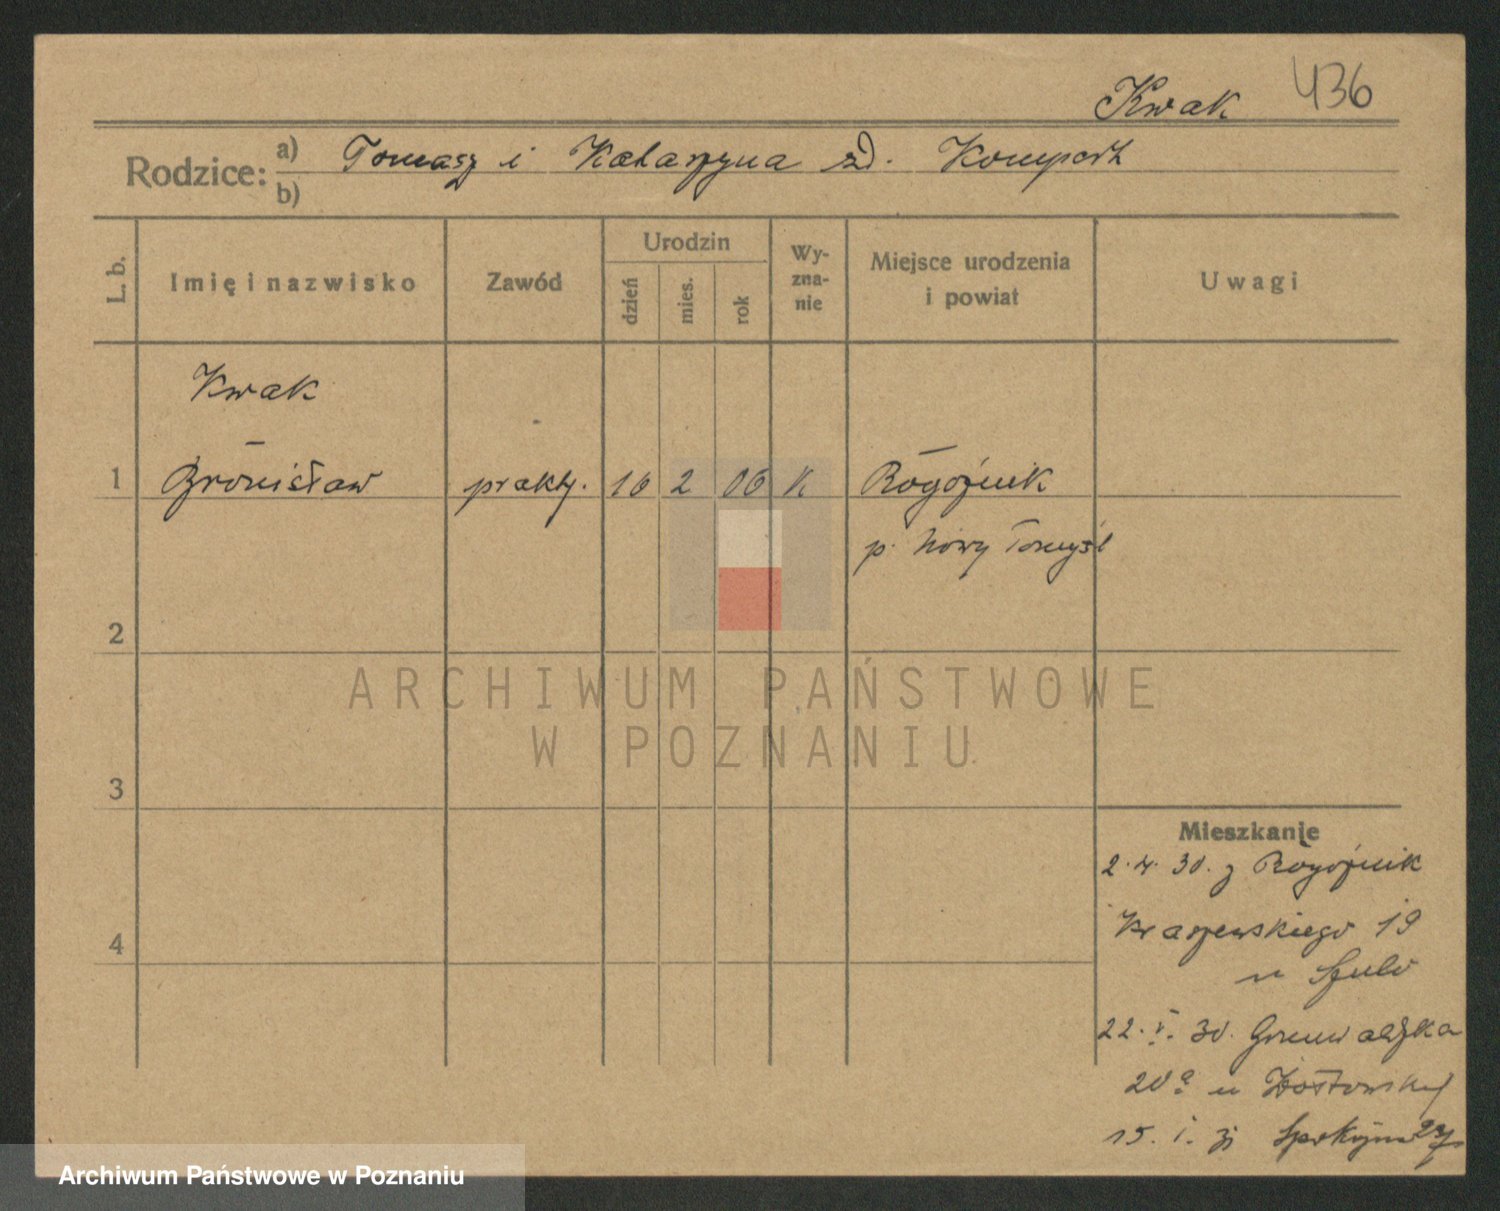 Kwak 436
Rodzice: a) Tomasz i Katarzyna zd.
b)
L. b.
Imię i nazwisko
Zawód
Urodzin
dzień
mies.
rok
Wy-
zna-
nie
Miejsce urodzenia
i powiat
Uwagi
Kwak
1 Bronisław prakty. 16 2 06 K Rogoźnik
p. Nowy Tomyśl
2
ARCHIWUM PAŃSTWOWE
W POZNANIU
3
Mieszkanie
2. 4. 30. z Rogoźnik
Kraszewskiego 19
u Szulc
4
22. V. 30. Grunwaldzka
20a u
15. I. 31 Spokojna
Archiwum Państwowe w Poznaniu